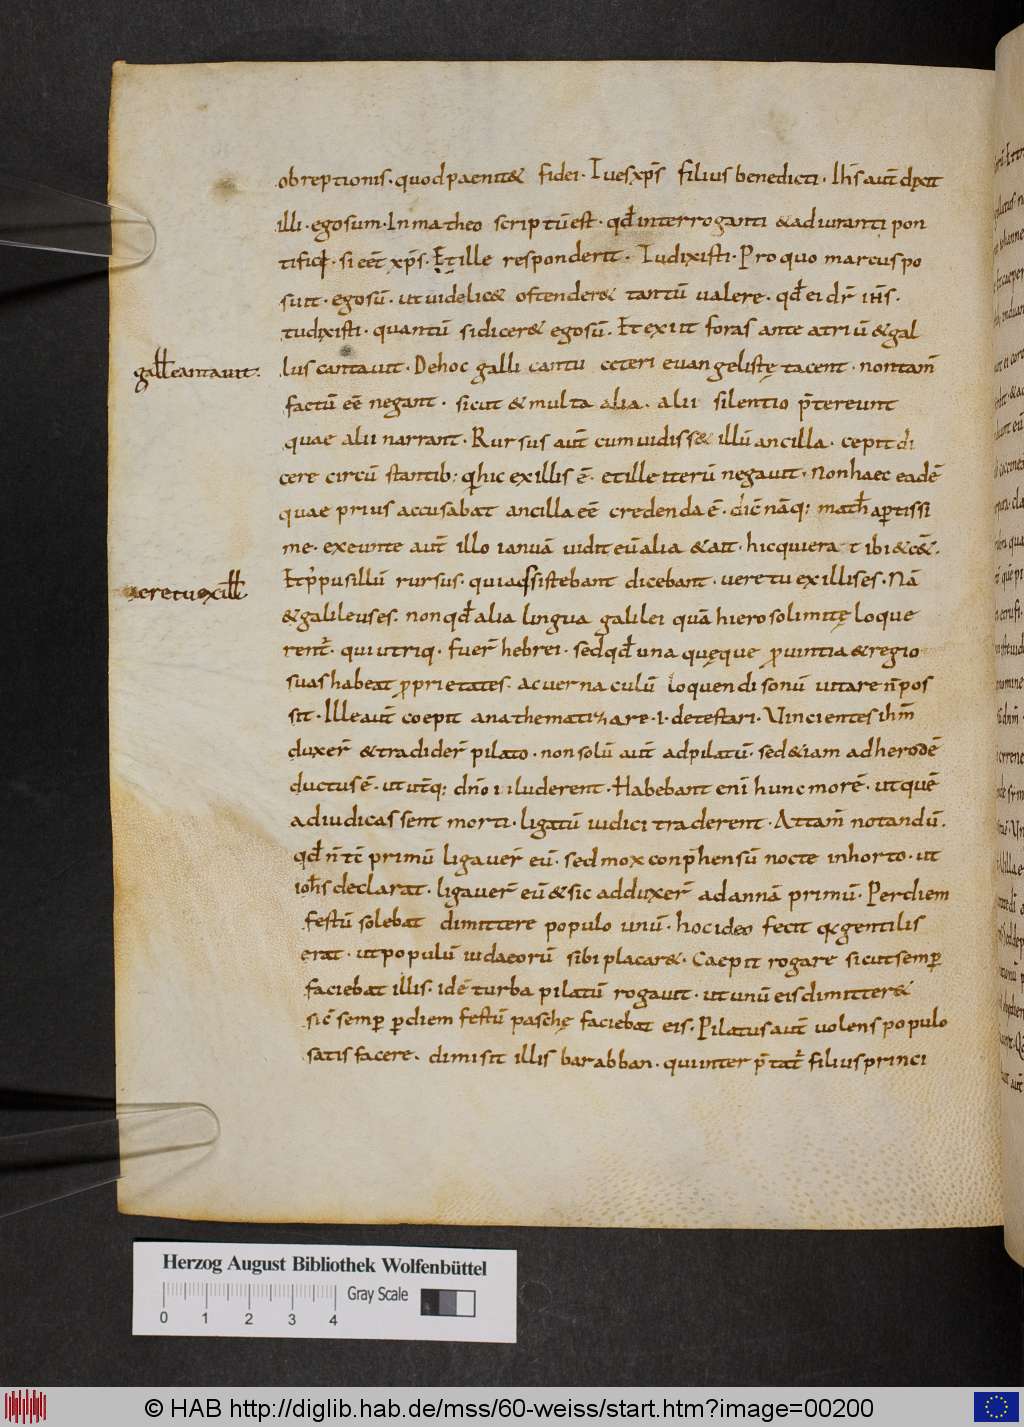 obreptionis· quod paenit& fidei· Tu es xp̄s filius benedicti· Ih̄s aut̄ dixit
illi· ego sum· In matheo scriptū est· qđ interroganti & adiuranti pon
tifici· si eēt xp̄s· Et ille responderit· Tu dixisti· Pro quo marcus po
suit· ego sū· ut uidelic& ostender& tantū ualere· qđ ei dr̄ ih̄s·
tu dixisti· quantū si dicer& ego sū· Et exiit foras ante atriū & gal
gall᷒ cantauit·
lus cantauit· De hoc galli cantu ceteri euangelistę tacent· non tam̄
factū eē negant· sicut & multa alia· alii silentio p̄tereunt
quae alii narrant· Rursus aut̄ cum uidiss& illū ancilla· cepit di
cere circū stantib: q hic ex illis ē· et ille iterū negauit· Non haec eadē
quae prius accusabat ancilla eē credenda ē· dic̄ nāq; math̄ aptissi
me· exeunte aut̄ illo ianuā uidit eū alia & ait· hic qui erat ibi & c̄&·
uere tu ex illis
Et p̄ pusillū rursus· qui adsistebant dicebant· uere tu ex illis es· Nā
& galileus es· non qđ alia lingua galilei quā hierosolimitę loque
rent᷒· qui utriq· fuer̄ hebrei· sed qđ una quęque ꝓuintia & regio
suas habeat ꝓprietates· ac uernaculū loquendi sonū uitare n̄ pos
sit· Ille aut̄ coepit anathematizare· i· detestari· Vincientes ihm̄
duxer̄ & tradider̄ pilato· non solū aut̄ ad pilatū· sed & iam ad herodē
ductus ē· ut utq; dn̄o illuderent· Habebant enī hunc morē· ut quē
adiudicassent morti· ligatū iudici traderent· Attam̄ notandū·
qđ n̄ tc̄ primū ligauer̄ eū· sed mox conp̄hensū nocte in horto· ut
ioh̄s declarat· ligauer̄ eū & sic adduxer̄ ad annā primū· Per diem
festū solebat dimittere populo unū· hoc ideo fecit qa gentilis
erat· ut populū iudaeorū sibi placar&· Caepit rogare sicut semꝑ
faciebat illis· idē turba pilatū rogauit· ut unū eis dimitter&
sic̄ semꝑ ꝑ diem festū paschę faciebat eis· Pilatus aut̄ uolens populo
satisfacere· dimisit illis barabban· qui interp̄tat᷒ filius princi
Herzog August Bibliothek Wolfenbüttel
Gray Scale
0 1 2 3 4
© HAB http://diglib.hab.de/mss/60-weiss/start.htm?image=00200